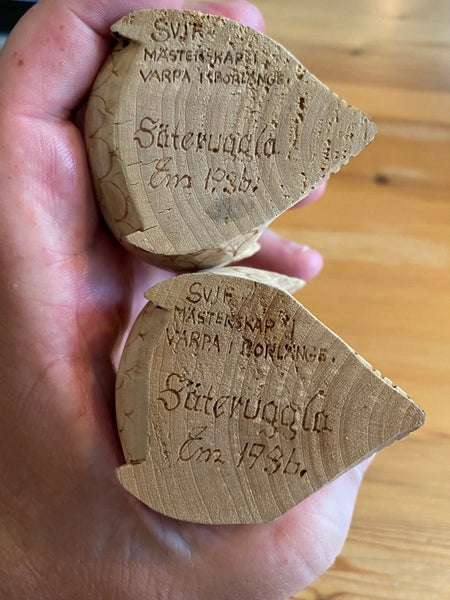 SVJF.
MÄSTERSKAPET
VARPA I BORLÄNGE.
Säteruggla
Em 1986.
SVJF.
MÄSTERSKAP I
VARPA I BORLÄNGE.
Säteruggla
Em 1986.